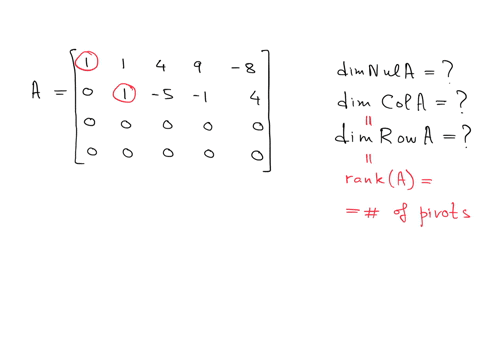 1 1 4 9 -8
A = 0 1 -5 -1 4
0 0 0 0 0
0 0 0 0 0
dim Nul A = ?
dim Col A = ?
=
dim Row A = ?
=
rank(A) =
= # of pivots